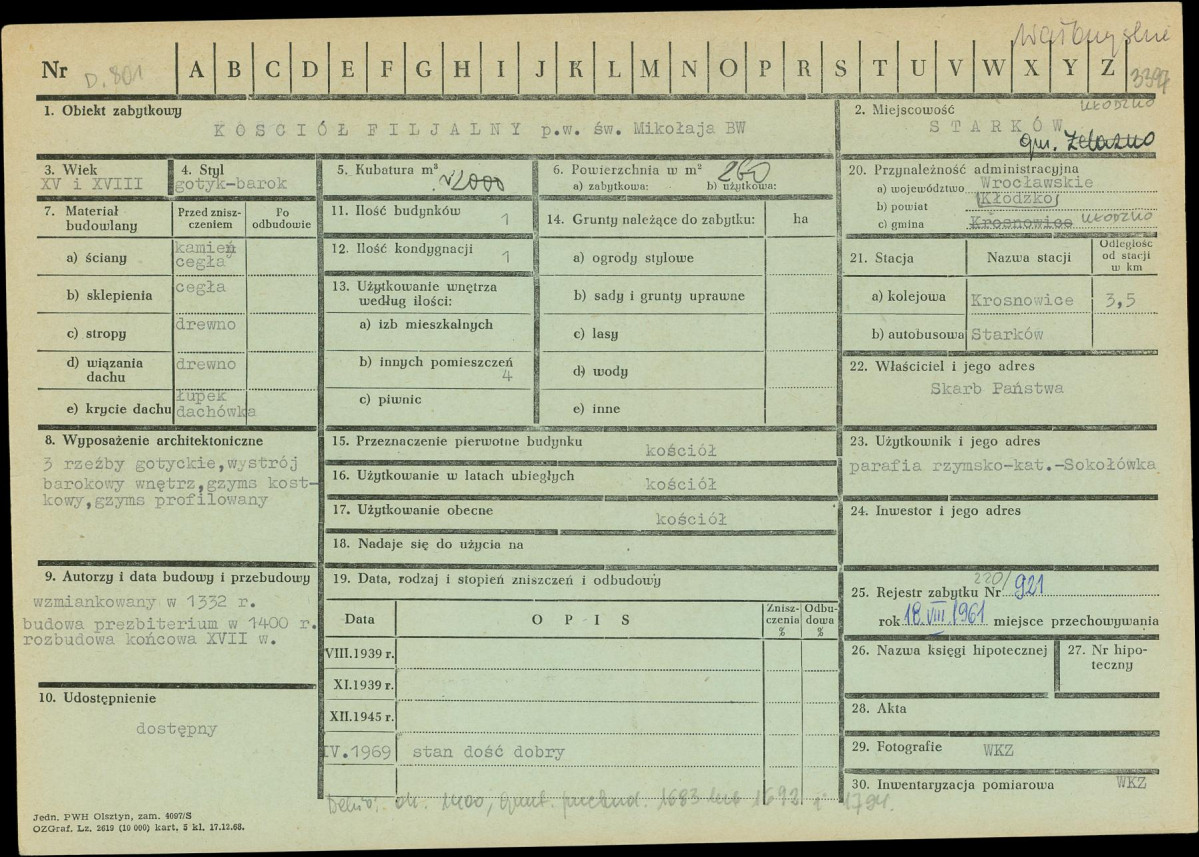 Wałbrzyskie
Nr D. 801 A B C D E F G H I J K L M N O P R S T U V W X Y Z 3397
1. Obiekt zabytkowy
KOSCIÓŁ FILJALNY p.w. św. Mikołaja BW
2. Miejscowość
KŁODZKO
STARKÓW
gm. Żelazno
3. Wiek
XV i XVIII
4. Styl
gotyk-barok
5. Kubatura m³
√2000
6. Powierzchnia w m² 260
a) zabytkowa: b) użytkowa:
20. Przynależność administracyjna
a) województwo Wrocławskie
b) powiat Kłodzko
c) gmina Krosnowice KŁODZKO
7. Materiał budowlany
Przed zniszczeniem
Po odbudowie
a) ściany kamień cegła
b) sklepienia cegła
c) stropy drewno
d) wiązania dachu drewno
e) krycie dachu łupek dachówka
11. Ilość budynków 1
12. Ilość kondygnacji 1
13. Użytkowanie wnętrza
według ilości:
a) izb mieszkalnych
b) innych pomieszczeń
4
c) piwnic
14. Grunty należące do zabytku: ha
a) ogrody stylowe
b) sady i grunty uprawne
c) lasy
d) wody
e) inne
21. Stacja Nazwa stacji Odległość od stacji w km
a) kolejowa Krosnowice 3,5
b) autobusowa Starków
22. Właściciel i jego adres
Skarb Państwa
8. Wyposażenie architektoniczne
3 rzeźby gotyckie,wystrój
barokowy wnętrz,gzyms kost-
kowy,gzyms profilowany
15. Przeznaczenie pierwotne budynku
kościół
16. Użytkowanie w latach ubiegłych
kościół
17. Użytkowanie obecne
kościół
18. Nadaje się do użycia na
23. Użytkownik i jego adres
parafia rzymsko-kat.-Sokołówka
24. Inwestor i jego adres
9. Autorzy i data budowy i przebudowy
wzmiankowany w 1332 r.
budowa prezbiterium w 1400 r.
rozbudowa końcowa XVII w.
10. Udostępnienie
dostępny
19. Data, rodzaj i stopień zniszczeń i odbudowy
Data OPIS Zniszczenia % Odbudowa %
VIII.1939 r.
XI.1939 r.
XII.1945 r.
IV.1969 stan dość dobry
ok. 1400, 1683 lub 1692 i 1794.
220/
25. Rejestr zabytku Nr 921
rok 18.VIII.1961 miejsce przechowywania
26. Nazwa księgi hipotecznej
27. Nr hipo-
teczny
28. Akta
29. Fotografie WKZ
30. Inwentaryzacja pomiarowa WKZ
Jedn. PWH Olsztyn, zam. 4097/S
OZGraf. Lz. 2619 (10 000) kart. 5 kl. 17.12.68.